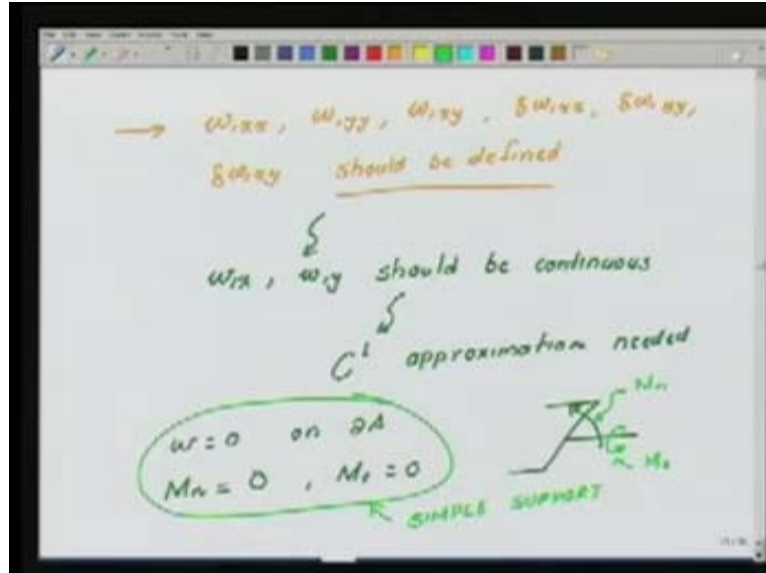 → w,xx, w,yy, w,xy, δw,xx, δw,yy,
δw,xy should be defined
w,x, w,y should be continuous
C¹ approximation needed
w = 0 on ∂A
Mn = 0, Ms = 0
Mn
Ms
SIMPLE SUPPORT